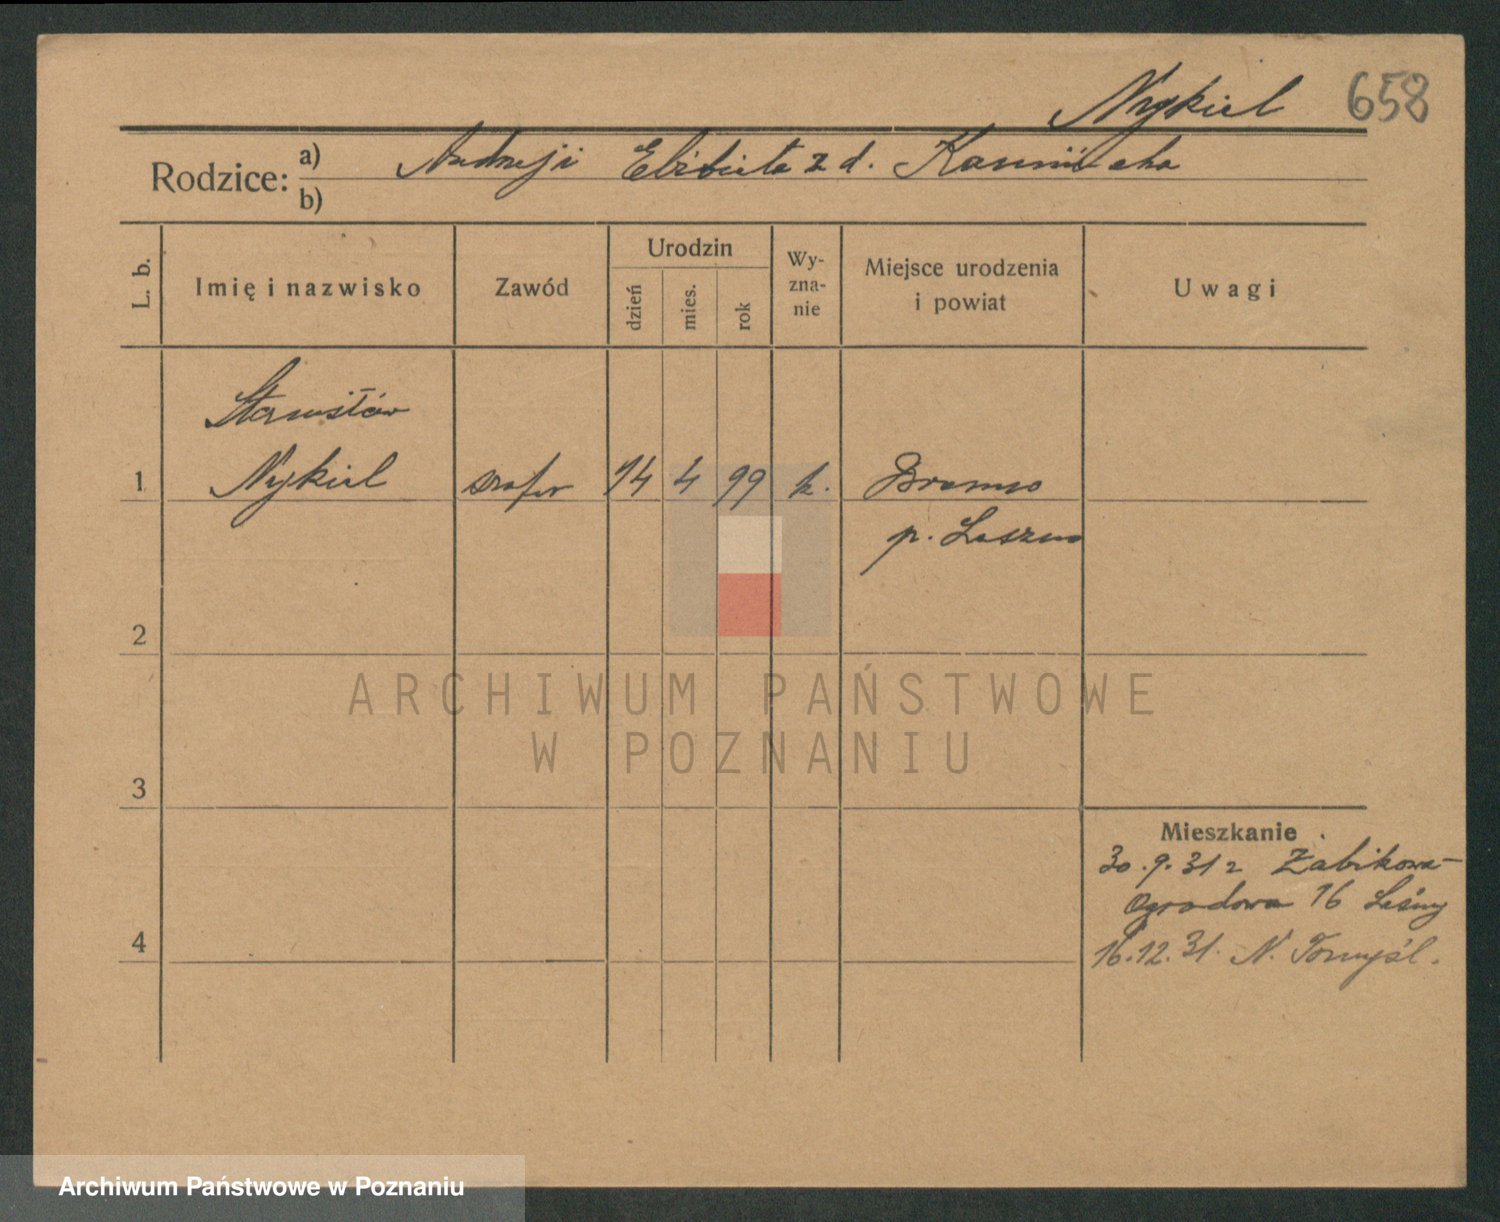 Nykiel 658
Rodzice: a) Andrzej i Elżbieta z d.
b)
L. b.
Imię i nazwisko
Zawód
Urodzin
dzień
mies.
rok
Wy-
zna-
nie
Miejsce urodzenia
i powiat
Uwagi
Stanisław
1 Nykiel szofer 14 4 99 k.
p. Leszno
2
3
4
Mieszkanie
30.9.31 z Żabikowa-
Ogrodowa 16
16.12.31. N. Tomyśl.
ARCHIWUM PAŃSTWOWE
W POZNANIU
Archiwum Państwowe w Poznaniu